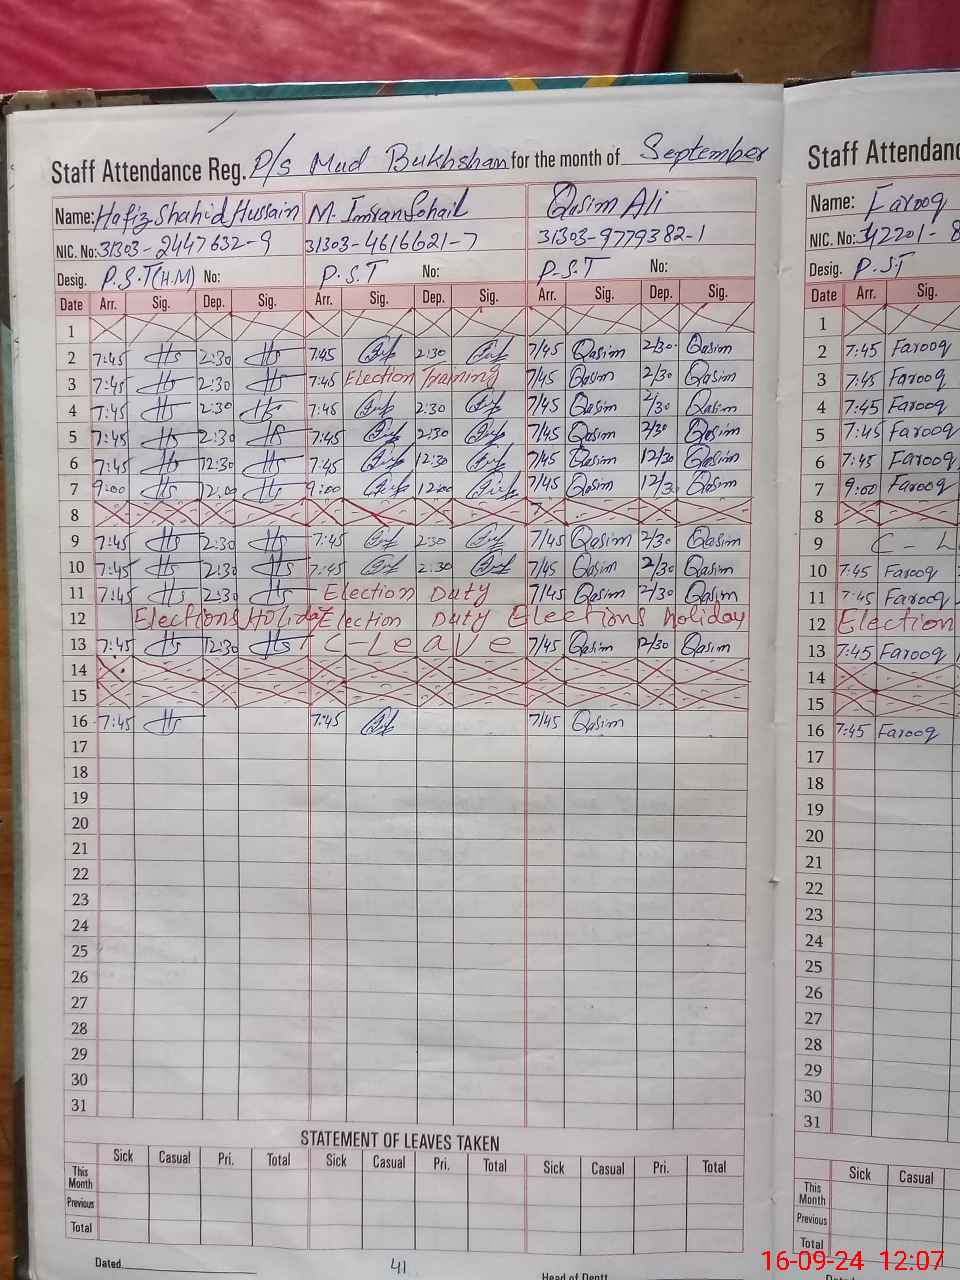 Staff Attendance Reg. P/s Mud Bukhshan for the month of September
Name: Hafiz Shahid Hussain M. Imran Sohail Qasim Ali
NIC. No: 31303-2447632-9 31303-4616621-7 31303-9779382-1
Desig. P.S.T (H.M) No: P.S.T No: P-S.T No:
Date Arr. Sig. Dep. Sig. Arr. Sig. Dep. Sig. Arr. Sig. Dep. Sig.
1
2 7:45 Hs 2:30 Hs 7:45 2:30 7/45 Qasim 2/30 Qasim
3 7:45 Hs 2:30 Hs 7:45 Election Training 7/45 Qasim 2/30 Qasim
4 7:45 Hs 2:30 Hs 7:45 2:30 7/45 Qasim 2/30 Qasim
5 7:45 Hs 2:30 Hs 7:45 2:30 7/45 Qasim 2/30 Qasim
6 7:45 Hs 12:30 Hs 7:45 12:30 7/45 Qasim 12/30 Qasim
7 9:00 Hs 12:00 Hs 9:00 12:00 7/45 Qasim 12/30 Qasim
8
9 7:45 Hs 2:30 Hs 7:45 2:30 7/45 Qasim 2/30 Qasim
10 7:45 Hs 2:30 Hs 7:45 2:30 7/45 Qasim 2/30 Qasim
11 7:45 Hs 2:30 Hs Election Duty 7/45 Qasim 2/30 Qasim
12 Elections Holiday Election Duty Elections Holiday
13 7:45 Hs 12:30 Hs C-Leave 7/45 Qasim 12/30 Qasim
14
15
16 7:45 Hs 7:45 7/45 Qasim
17
18
19
20
21
22
23
24
25
26
27
28
29
30
31
STATEMENT OF LEAVES TAKEN
Sick Casual Pri. Total Sick Casual Pri. Total Sick Casual Pri. Total
This Month
Previous
Total
Dated. 41 Head of Deptt
Staff Attendanc
Name: Farooq
NIC. No: 342201-8
Desig. P.S.T
Date Arr. Sig.
1
2 7:45 Farooq
3 7:45 Farooq
4 7:45 Farooq
5 7:45 Farooq
6 7:45 Farooq
7 9:00 Farooq
8
9 C-L
10 7:45 Farooq
11 7:45 Farooq
12 Election
13 7:45 Farooq
14
15
16 7:45 Farooq
17
18
19
20
21
22
23
24
25
26
27
28
29
30
31
Sick Casual
This Month
Previous
Total
16-09-24 12:07